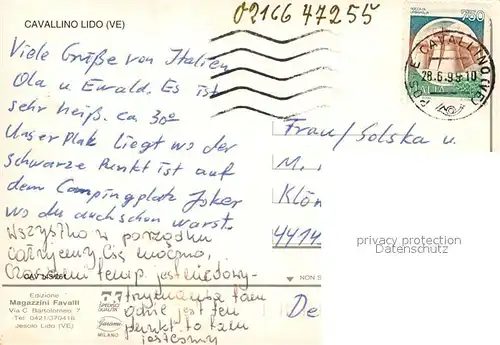 CAVALLINO LIDO (VE)
02166 47255
Viele Grüße von Italien
Ola u. Ewald. Es ist
sehr heiß. ca. 30°
Unser Platz liegt wo der
schwarze Punkt ist auf
dem Campingplatz Joker
wo du auch schon warst.
Wszystko w porządku
całujemy Cię mocno,
Czasem temp. jest niedowy-
trzymania tam
gdzie jest ten
punkt to tam
jesteśmy
CAV 243/261
Edizione:
Magazzini Favalli
Via C. Bartolomeo 7
Tel. 0421/370416
Jesolo Lido (VE)
MILANO
750
ITALIA
CAVALLINO (VE)
28.6.95-10
Frau/Solska u.
M.
Klön
4414
privacy protection
Datenschutz
NON S
De